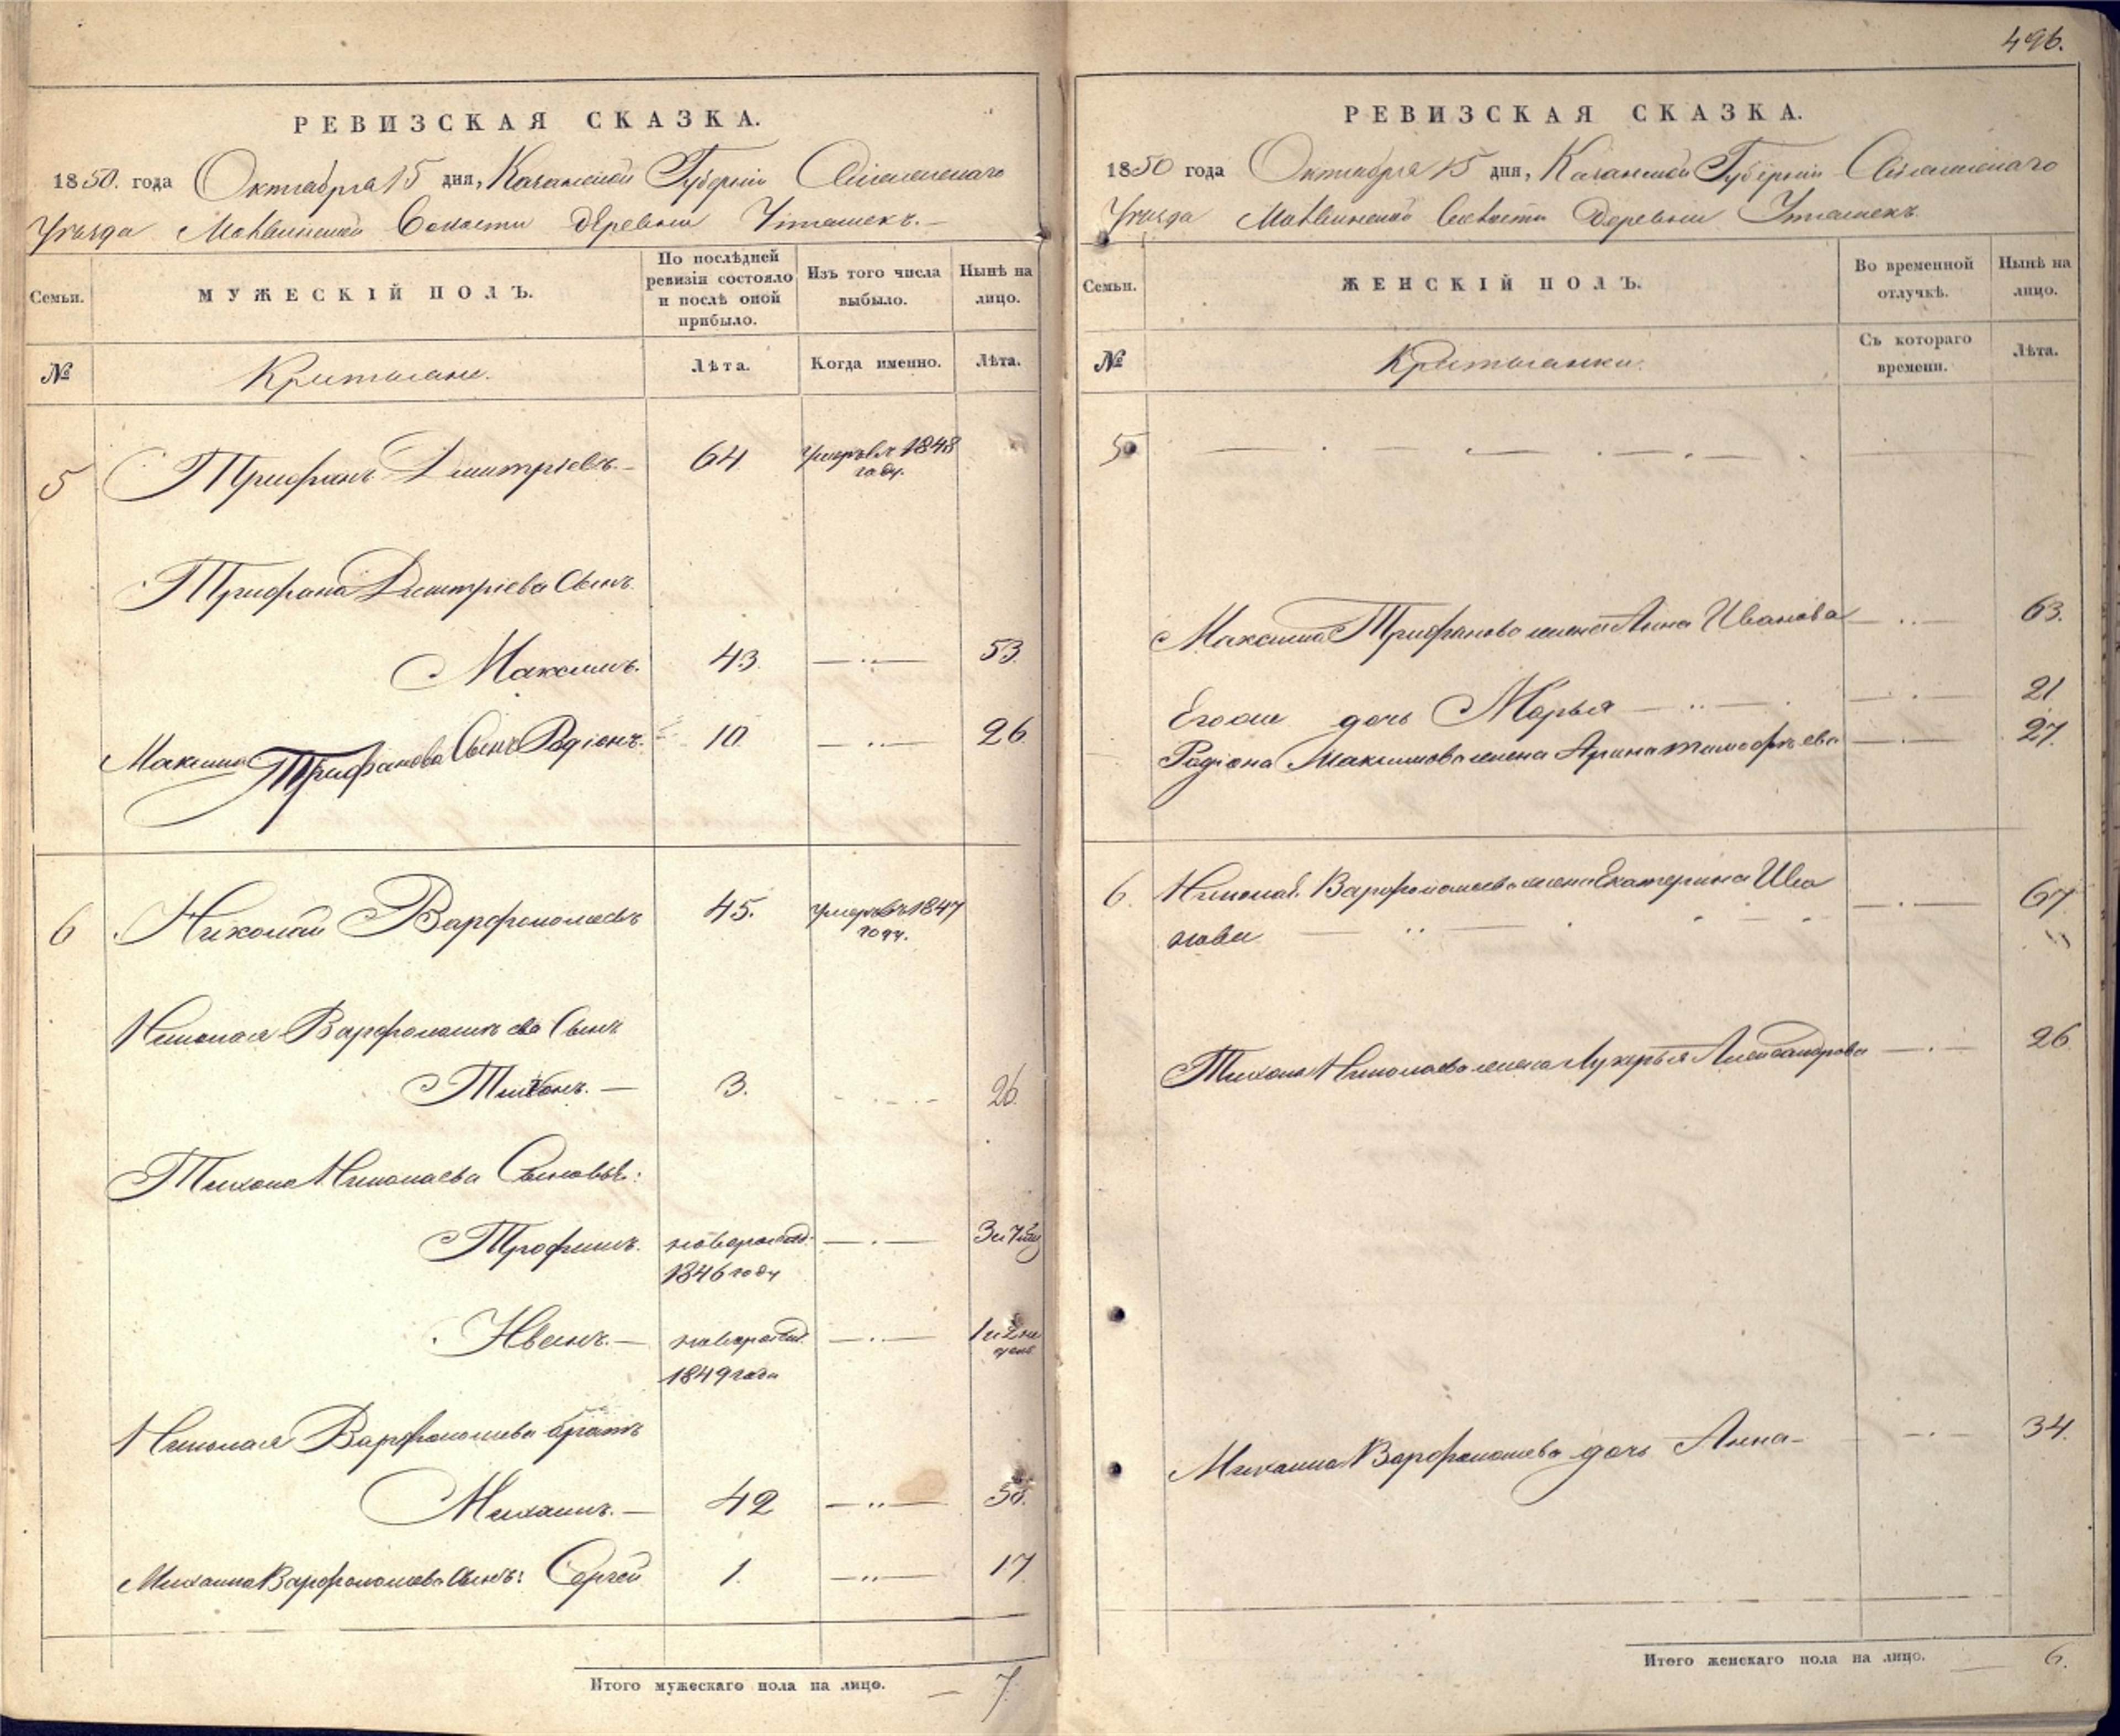 РЕВИЗСКАЯ СКАЗКА.
1850. года Октября 15 дня, Казанской Губернiи
Уѣзда Волости Деревни
Семьи.
МУЖЕСКІЙ ПОЛЪ.
По послѣдней ревизіи состояло и послѣ оной прибыло.
Изъ того числа выбыло.
Нынѣ на лицо.
№
Крестьяне.
Лѣта.
Когда именно.
Лѣта.
5 Трифанъ Дмитріевъ. 64 умеръ въ 1848 году.
Трифана Дмитріева Сынъ
Максимъ. 43. 53
Максима Трифанова Сынъ Родіонъ. 10 26
6 Николай Варфоломеевъ 45. умеръ въ 1847 году.
Николая Варфоломѣева Сынъ
Тихонъ. 3. 26.
Тихона Николаева Сыновья:
Трофимъ. новорожд. 1846 году
Иванъ. новорожд. 1849 года
Николая Варфоломеева братъ
Михаилъ. 42
Михаила Варфоломеева Сынъ: Сергей 1. 17
Итого мужескаго пола на лицо. 7.
496.
РЕВИЗСКАЯ СКАЗКА.
1850 года Октября 15 дня, Казанской Губерніи
Уѣзда Волости Деревни
Семьи.
ЖЕНСКІЙ ПОЛЪ.
Во временной отлучкѣ.
Нынѣ на лицо.
№
Крестьянки.
Съ котораго времени.
Лѣта.
5
Максима Трифанова жена Анна Иванова 63.
Его же дочь Марья 21
Родіона Максимова жена Арина Тимофѣева 27.
6. Николая Варфоломеева жена Екатерина Ива
нова 67
Тихона Николаева жена Лукерья Александрова 26
Михаила Варфоломеева дочь Анна 34.
Итого женскаго пола на лицо. 6.